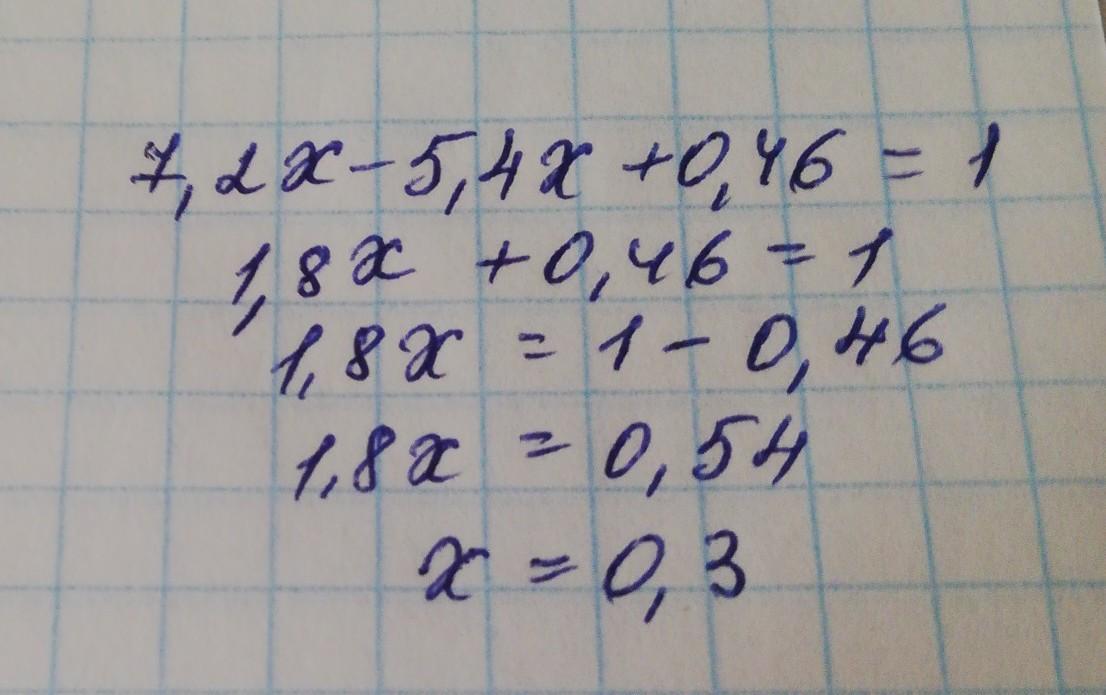 7,2x - 5,4x + 0,46 = 1
1,8x + 0,46 = 1
1,8x = 1 - 0,46
1,8x = 0,54
x = 0,3